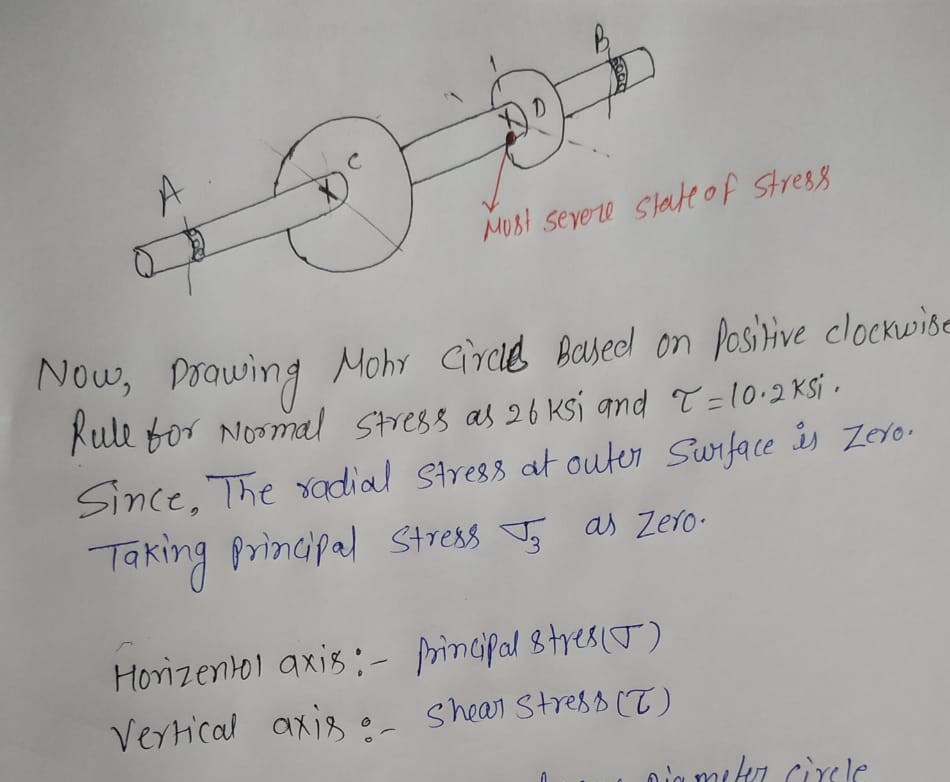 B
D
C
A
Most severe state of stress
Now, Drawing Mohr Circle Based on Positive clockwise
Rule for Normal stress as 26 ksi and τ = 10.2 ksi.
Since, The radial stress at outer surface is zero.
Taking principal stress σ3 as zero.
Horizentol axis :- principal stres (σ)
Vertical axis :- shear stress (τ)
Diameter circle